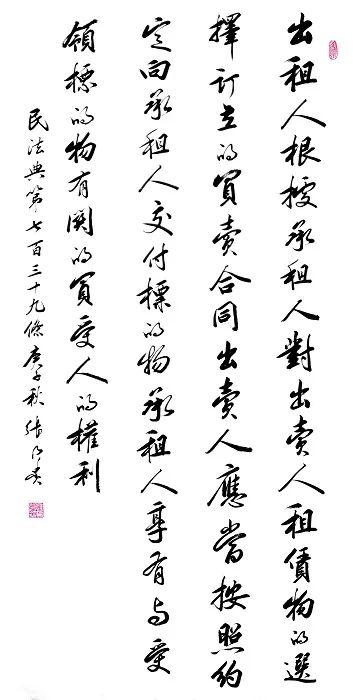 出租人根據承租人對出賣人租賃物的選
擇訂立的買賣合同出賣人應當按照約
定向承租人交付標的物承租人享有與受
領標的物有關的買受人的權利
民法典第七百三十九條庚子秋張